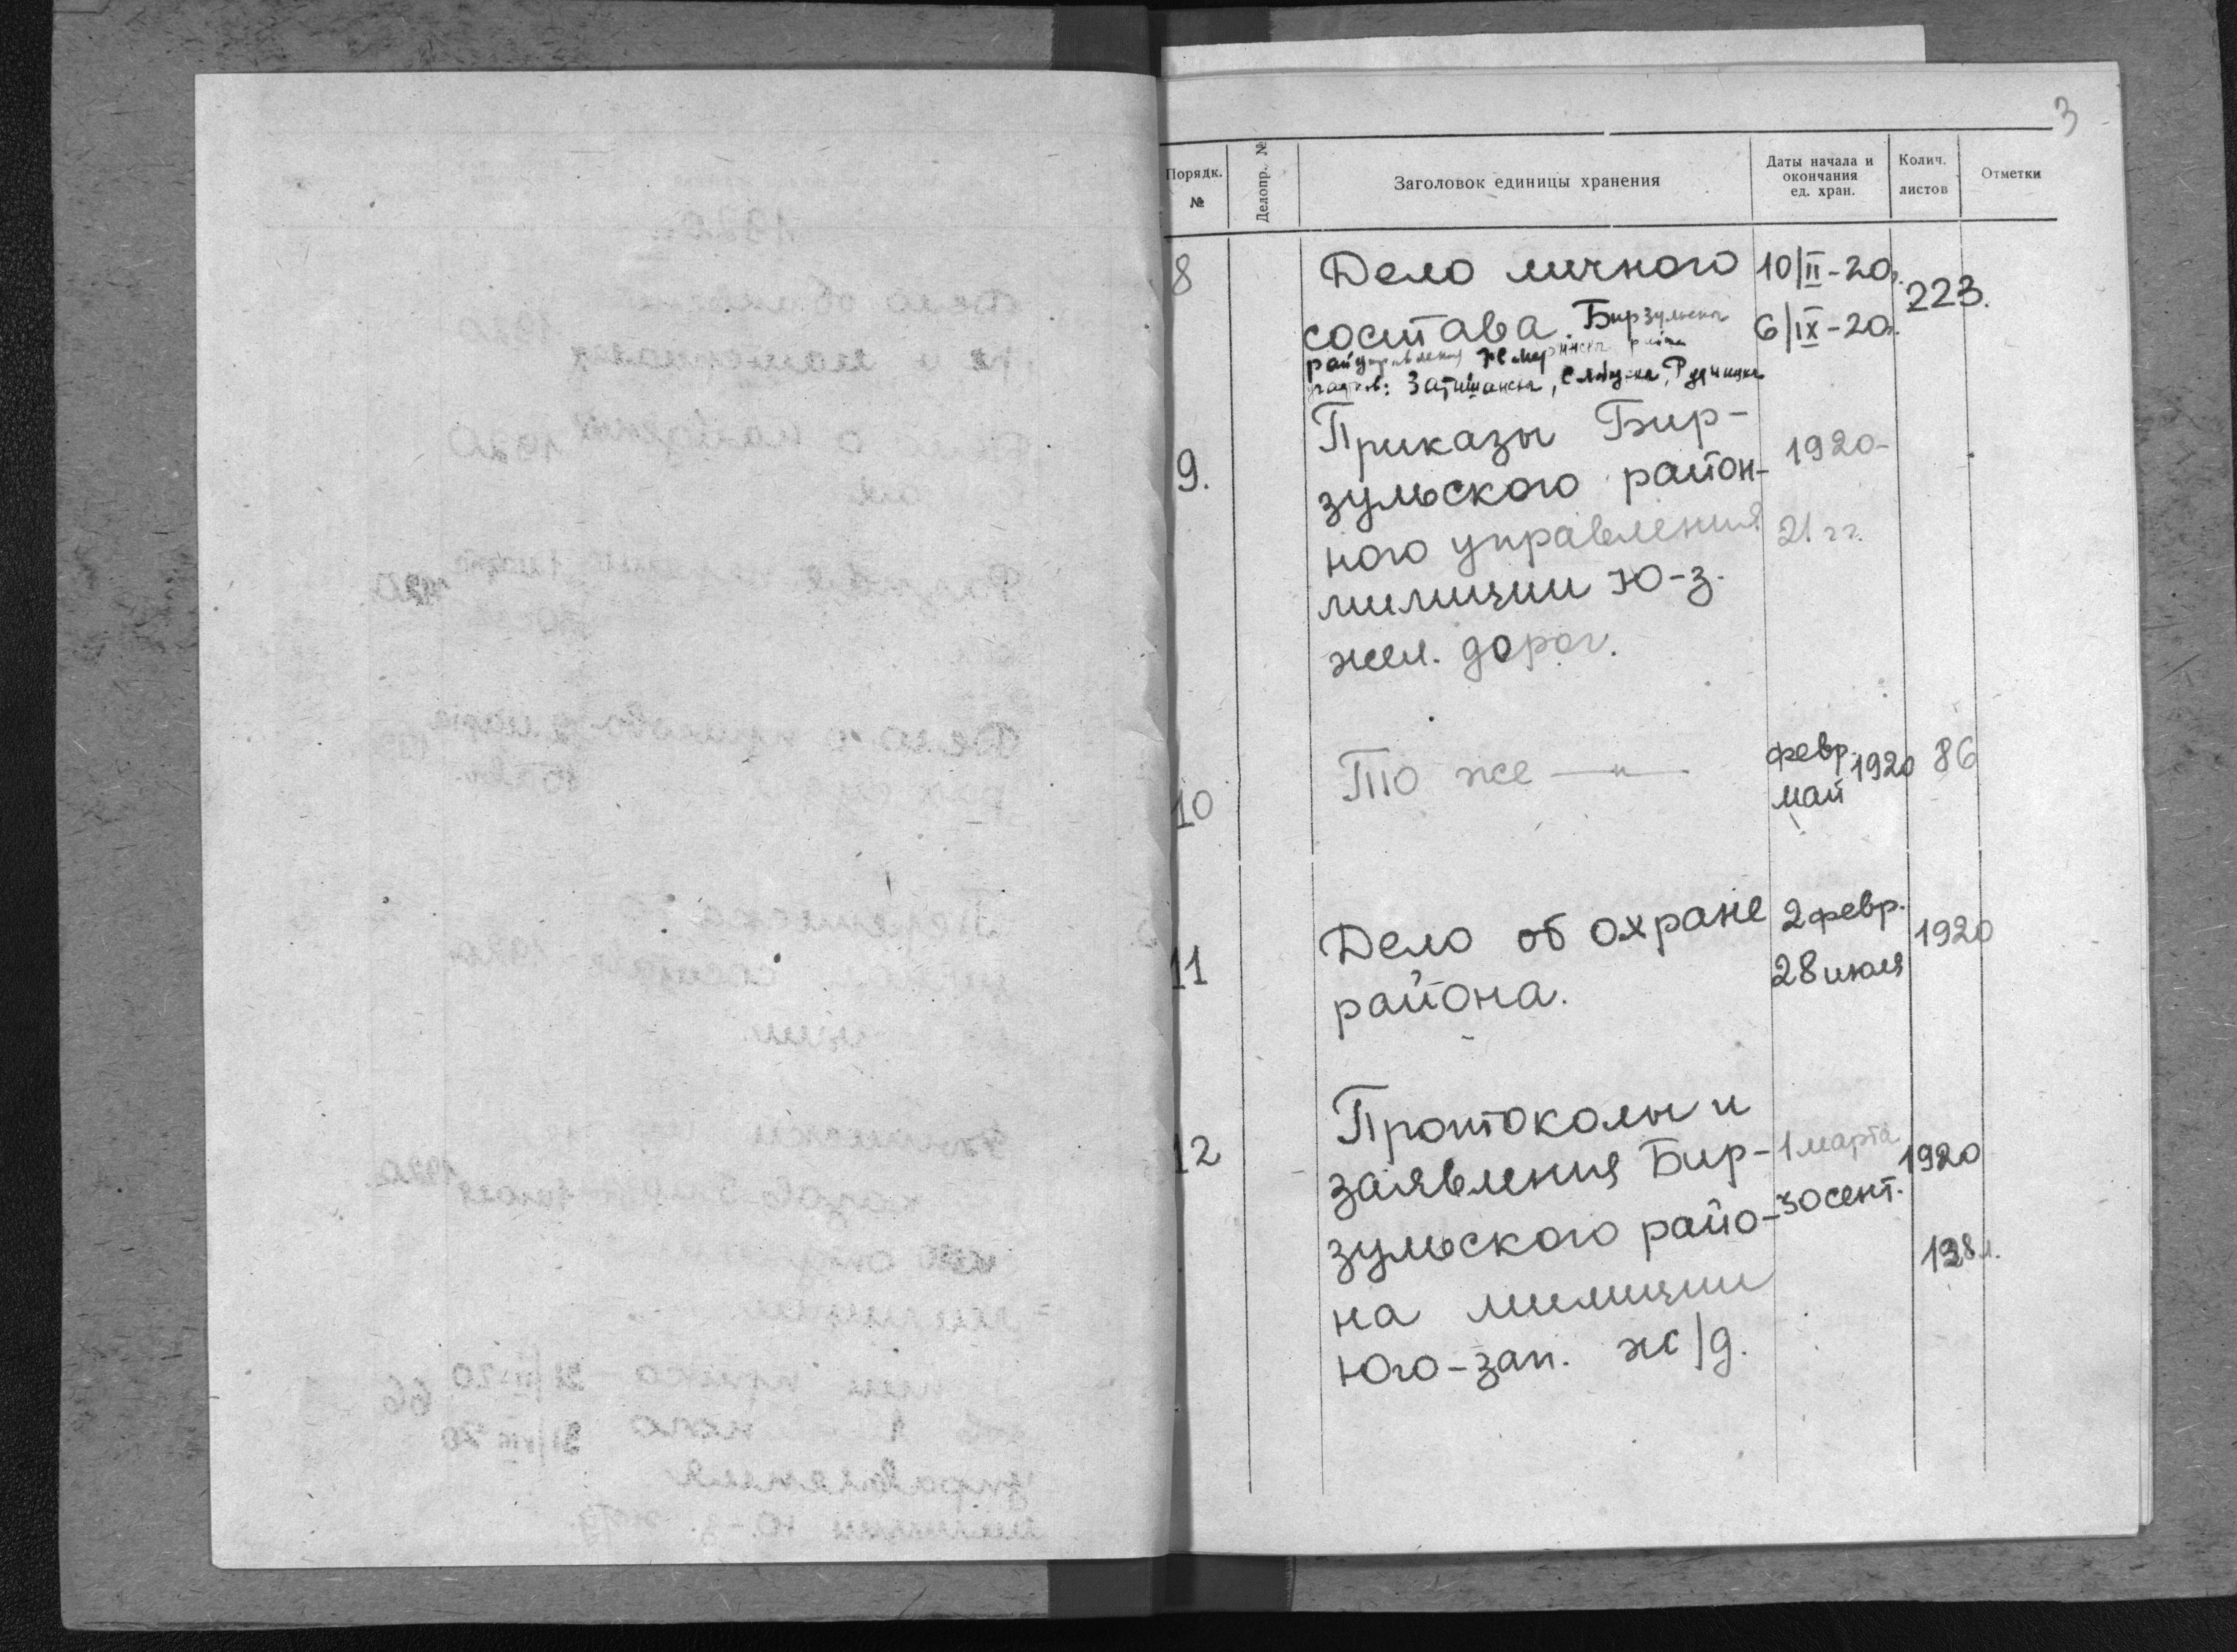 3
Порядк. №
Делопр. №
Заголовок единицы хранения
Даты начала и окончания ед. хран.
Колич. листов
Отметки
8 Дело личного 10/II-20г. 223.
состава. Бирзульск 6/IX-20г.
райуправления района
Затишанск, Слободка, Рудницка
9. Приказы Бир- 1920-
зульского район-
ного управления 21 гг.
милиции Ю-з.
жел. дорог.
10 То же —"— февр. май 1920 86
11 Дело об охране 2 февр. 1920
района. 28 июля
12 Протоколы и
заявления Бир- 1 марта 1920
зульского райо- 30 сент.
на милиции 198 л.
Юго-зап. ж/д.